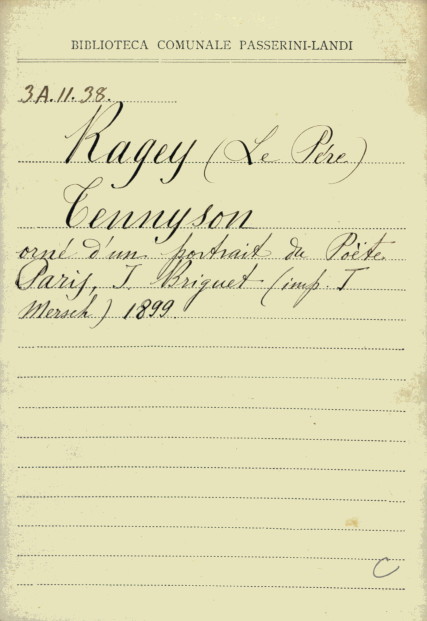 BIBLIOTECA COMUNALE PASSERINI-LANDI
3A.11.38.
Ragey (Le Père)
Tennyson
orné d'un portrait du Poëte
Paris, T. Briguet (imp. T
Mersch) 1899.
C